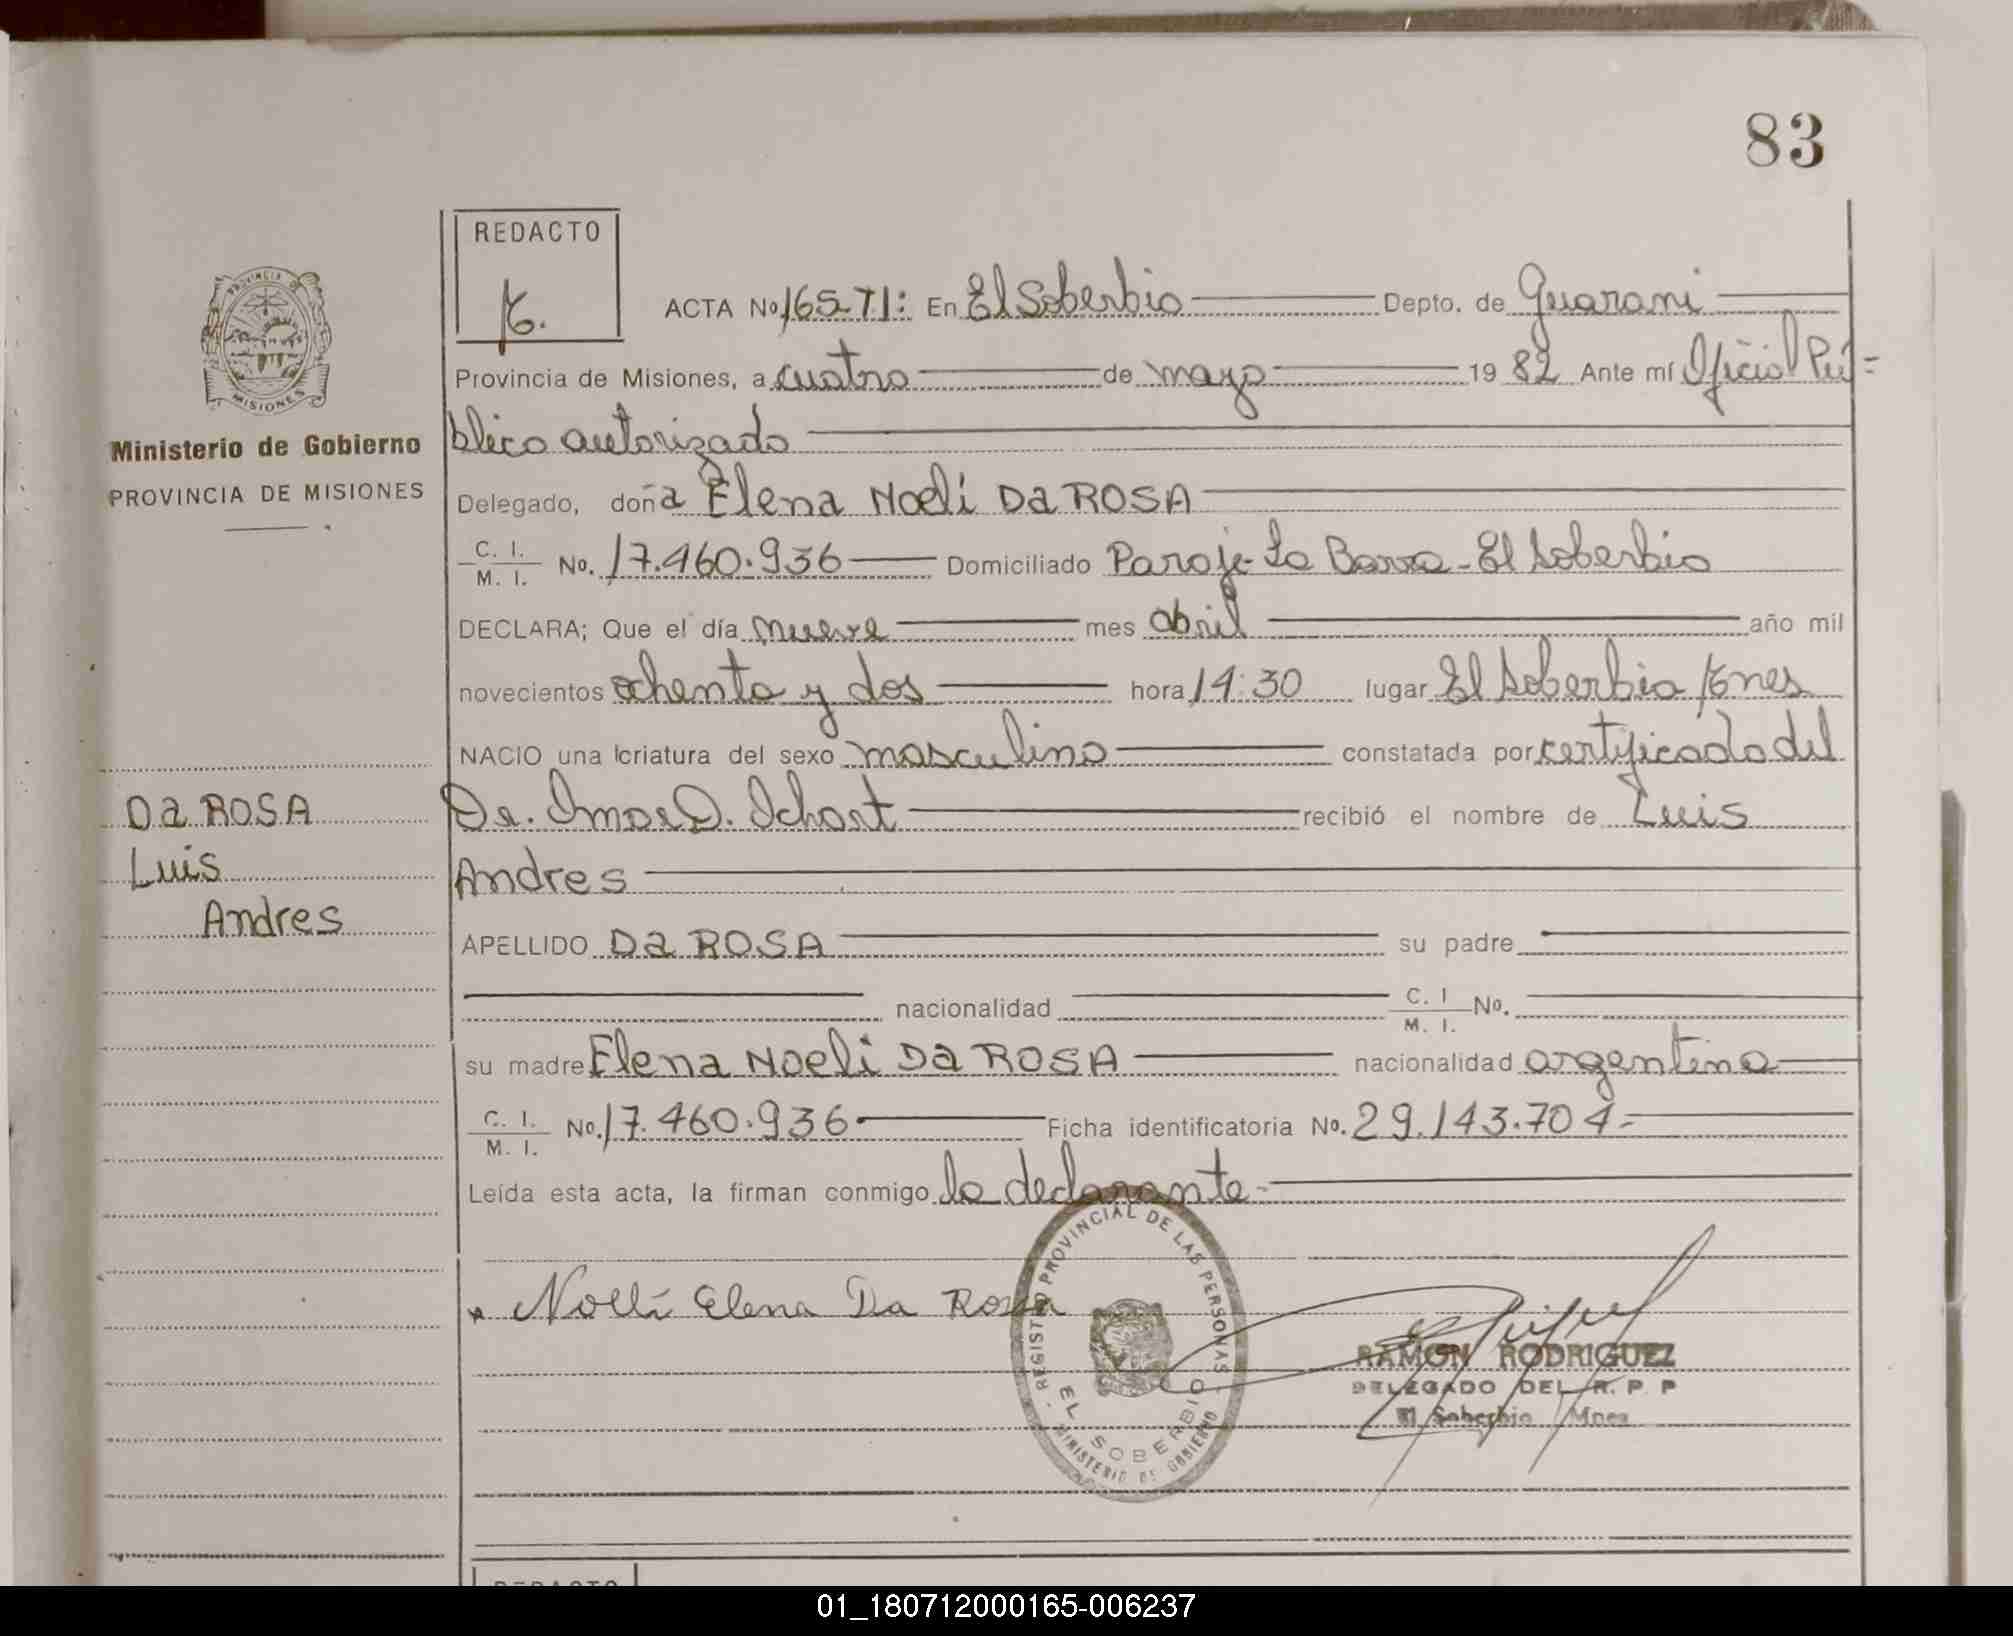 83
REDACTO
ACTA No 165 TI: En El Soberbio Depto. de Guarani
Provincia de Misiones, a cuatro de mayo 19 82 Ante mí Oficial Pú=
blico autorizado
Ministerio de Gobierno
PROVINCIA DE MISIONES
Delegado, doña Elena Noeli Da ROSA
C. I. M. I. No. 17.460.936 Domiciliado Paraje La Barra - El Soberbio
DECLARA; Que el día nueve mes abril año mil
novecientos ochenta y dos hora 14:30 lugar El Soberbio Mnes
NACIO una criatura del sexo masculino constatada por certificado del
Dr. Omar D. recibió el nombre de Luis
Andres
Da ROSA
Luis
Andres
APELLIDO Da ROSA su padre
nacionalidad C. I M. I. No.
su madre Elena Noeli Da ROSA nacionalidad argentina
C. I. M. I. No. 17.460.936 Ficha identificatoria No. 29.143.704-
Leída esta acta, la firman conmigo la declarante-
Noelí Elena Da Rosa
REGISTRO PROVINCIAL DE LAS PERSONAS
EL SOBERBIO
MINISTERIO DE GOBIERNO
RAMON RODRIGUEZ
DELEGADO DEL R. P. P
El Soberbio Mnes
REDACTO
PROVINCIA DE
MISIONES
01_180712000165-006237